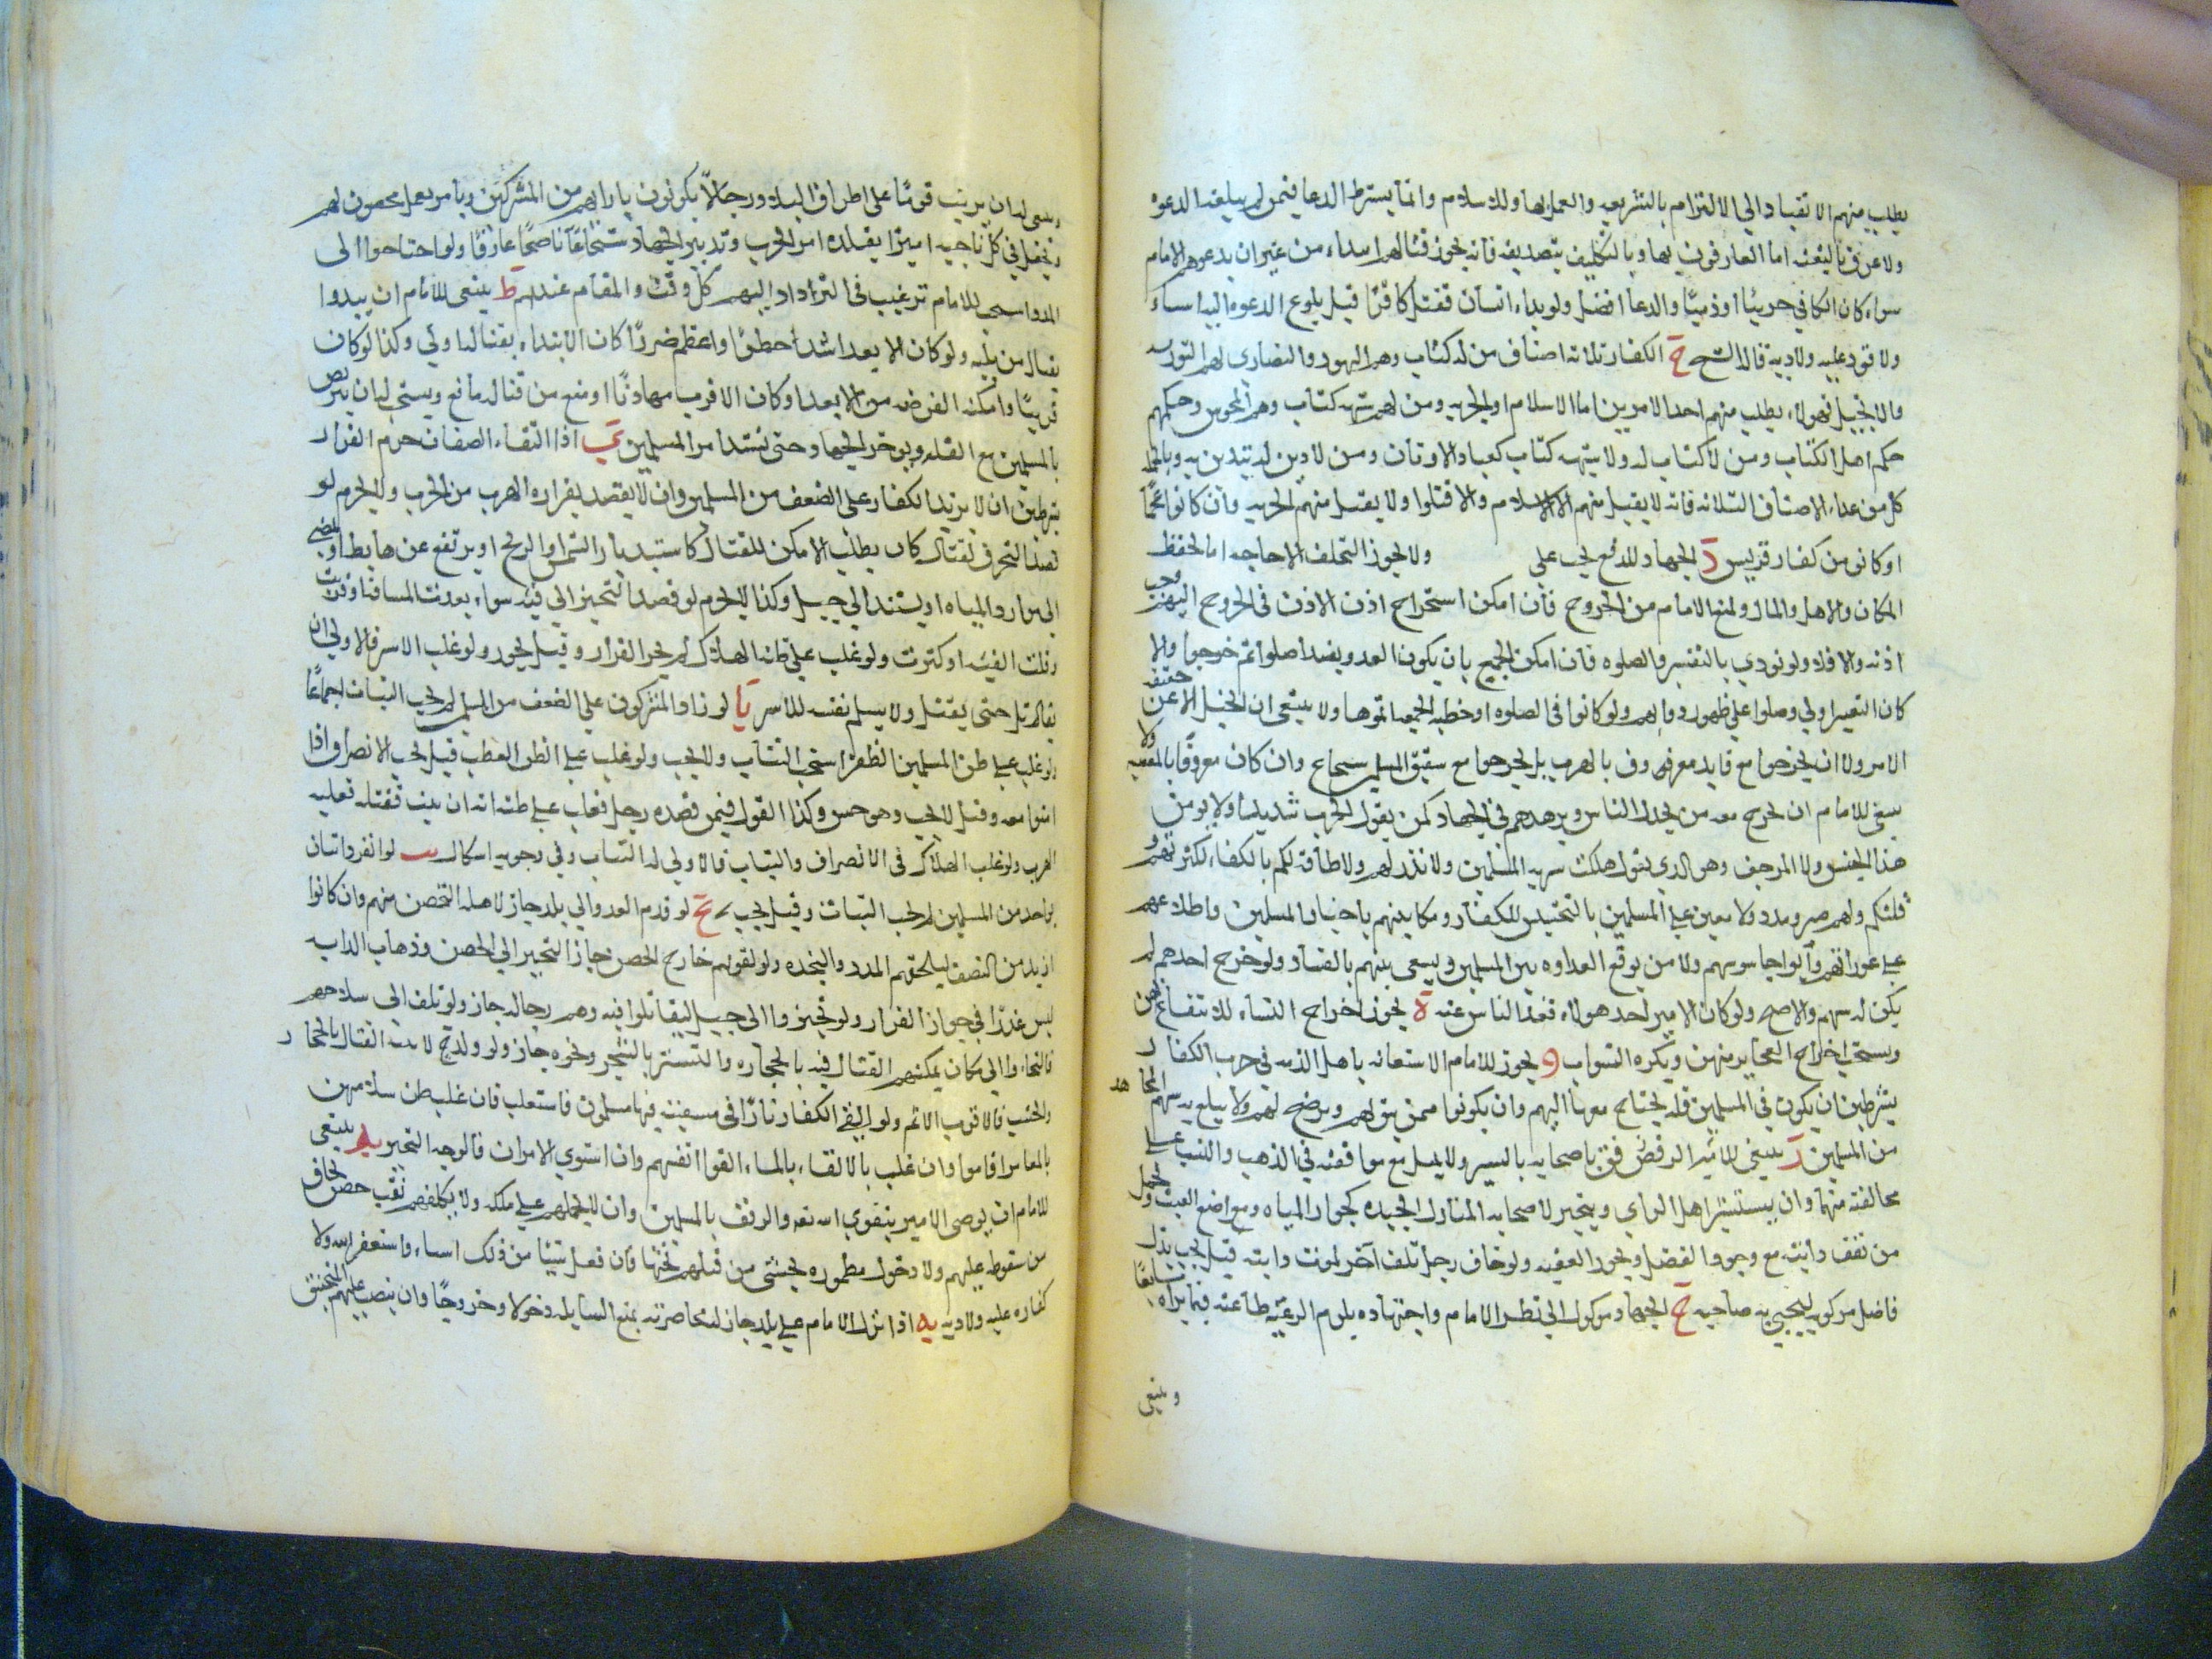 يطلب منهم الانقياد الى الالتزام بالشريعه والعمل بها وللاسلام وانما يشترط الدعا فيمن لم يبلغه الدعوه
ولا عرف بالبعثه اما العارفون بها وبالتكليف بتصديقه فانه يجوز قتالهم ابتداء من غير ان يدعوهم الامام
سواء كان الكافر حربيا او ذميا والدعا افضل ولو بداء انسان فقتل كافرا قبل بلوغ الدعوه اليه اساء
ولا قود عليه ولا ديه قاله الشيخ ج الكفار ثلاثه اصناف من له كتاب وهم اليهود والنصارى لهم التوريه
والانجيل فهولاء يطلب منهم احد الامرين اما الاسلام او الجزيه ومن لهم شبهه كتاب وهم المجوس وحكمهم
حكم اهل الكتاب ومن لا كتاب له ولا شبهه كتاب كعباد الاوثان ومن لا دين له يتدين به وبالجمله
كل من عداء الاصناف الثلاثه فانه لا يقبل منهم الا الاسلام والا قتلوا ولا يقبل منهم الجزيه وان كانوا عجما
او كانو من كفار قريش د الجهاد للدفع يجب على ولا يجوز التخلف الا حاجه اما لحفظ
المكان والاهل والمال ولمنع الامام من الخروج فان امكن استخراج اذن الاذن في الخروج اليهم وجب
اذنه والا فلا ولو نودي بالنفير والصلوه فان امكن الجميع بان يكون العدو بعيدا صلوا ثم خرجوا والا
كان النفير اولى وصلوا على ظهور دوابهم ولو كانوا في الصلوه او خطبه الجمعه اتموها ولا ينبغي ان الخيل الا عن حقيقه
الامر ولا ان يخرجوا مع قايد معروف بالهرب بل يخرجوا مع شفيق المسلمين شجاع وان كان معروفا بالمعصيه ولا
ينبغي للامام ان يخرج معه من يخذل الناس ويزهدهم في الجهاد كمن يقول الحرب شديد ولا يومن
هذا الجيش ولا المرجف وهو الذي يقول هلكت سريه المسلمين ولا نذر لهم ولا طاقه لكم بالكفار لكثرتهم و
قلتكم ولهم صبر ومدد ولا معين على المسلمين بالتجسيس للكفار ومكاتبتهم باخبار المسلمين واطلاعهم
على عوراتهم وايواء جاسوسهم ولا من يوقع العداوه بين المسلمين ويسعى بينهم بالفساد ولو خرج احدهم لم
يكن له سهم والاصح ولو كان الامير احد هولاء فنفر الناس عنه ه يجوز اخراج النساء للانتفاع بهن
ويستحب اخراج العجايز منهن ويكره الشواب و يجوز للامام الاستعانه باهل الذمه في حرب الكفار
بشرطين ان يكون في المسلمين قله يحتاج معها اليهم وان يكونوا ممن يثق لهم ويرضخ لهم ولا يبلغ به سهم المجاهد
من المسلمين ز ينبغي للامير الرفق باصحابه بالسير ولا يميل مع موافقته في المذهب والنسب على
مخالفته منهما وان يستشير اهل الراي ويتخير لاصحابه المنازل الجيده كجوار المياه ومواضع العشب ولحمل
من نفقت دابته مع وجود الفضل ويجوز العقبه ولو خاف رجل تلف اخر لموت دابته قيل يجب بذل
فاضل مركوبه ليحيي به صاحبه ح الجهاد موكول الى نظر الامام واجتهاده يلزم الرعيه طاعته فيما يراه
وينبغي
وينبغي له ان يرتب قوما على اطراف البلاد ورجالا يكونون بازائهم من المشركين ويامر بعمل حصون لهم
ويجعل في كل ناحيه اميرا يقلده امر الحرب وتدبير الجهاد شجاعا ناصحا عارفا ولو احتاجوا الى
المدد استحب للامام ترغيب في الترداد اليهم كل وقت والمقام عندهم ط ينبغي للامام ان يبدوا
بقتال من يليه ولو كان الابعد اشد خطرا واعظم ضررا كان الابتداء بقتاله اولى وكذا لو كان
قريبا وامكنه الفرصه من الابعد او كان الاقرب مهادنا او منع من قتاله مانع ويستحب له ان يتربص
بالمسلمين مع القله ويوخر الجهاد حتى يشتد امر المسلمين ي اذا التقاء الصفان حرم الفرار
بشرطين ان لا يزيد الكفار على الضعف من المسلمين وان لا يقصد بفراره الهرب من الحرب ولا يحرم لو
قصد التحرف لقتال كان يطلب الامكن للقتال كاستدبار الشمس او الريح او يرتفع عن هابط او يمضي
الى موارد المياه او يستند الى جبل وكذا لا يحرم لو قصد التحيز الى فئه سواء بعدت المسافه او قربت
وقلت الفئه او كثرت ولو غلب على ظنه الهلاك لم يجز الفرار وقيل يجوز ولو غلب الاسر فالاولى ان
يقاتل حتى يقتل ولا يسلم نفسه للاسر يا لو زاد المشركون على الضعف من المسلمين لم يجب الثبات اجماعا
ولو غلب على ظن المسلمين الظفر استحب الثبات ولا يجب ولو غلب على الظن العطب قيل يجب الانصراف اذا
امنوا معه وقيل لا يجب وهو حسن وكذا القول فيمن قصده رجل فغلب على ظنه انه ان ثبت قتله فعليه
الهرب ولو غلب الهلاك في الانصراف والثبات فالاولى له الثبات وفي وجوبه اشكال يب لو انفرد اثنان
بواحد من المسلمين لم يجب الثبات وقيل يجب يج لو قدم العدو الى بلد جاز لاهله التحصن منهم وان كانوا
ازيد من النصف ليلحقهم المدد والنجده ولو لقوهم خارج الحصن جاز التحيز الى الحصن وذهاب الدابه
ليس عذرا في جواز الفرار ولو تحيزوا الى جبل ليقاتلوا فيه وهم رجاله جاز ولو تلف الى سلاحهم
فالتجاءوا الى مكان يمكنهم القتال فيه بالحجاره والتستر بالشجر ونحوه جاز ولو القتال بالحجار
والخشب فالاقرب الاثم ولو القى الكفار نارا في سفينه فيها مسلمون فاشتعلت فان غلب ظن سلامتهم
بالمقام اقاموا وان غلب بالالقاء بالماء القوا انفسهم وان استوى الامران فالوجه التخير يد ينبغي
للامام ان يوصي الامير بتقوى الله تعه والرفق بالمسلمين وان لا يحملهم على مهلكه ولا يكلفهم نقب حصن يخاف
من سقوطه عليهم ولا دخول مطموره يخشى من قتلهم تحتها فان فعل شيئا من ذلك اساء واستغفر الله ولا
كفاره عليه ولا ديه يه اذا نزل الامام على بلد جاز له محاصرته بمنع السابله دخولا وخروجا وان ينصب عليهم المنجنيق